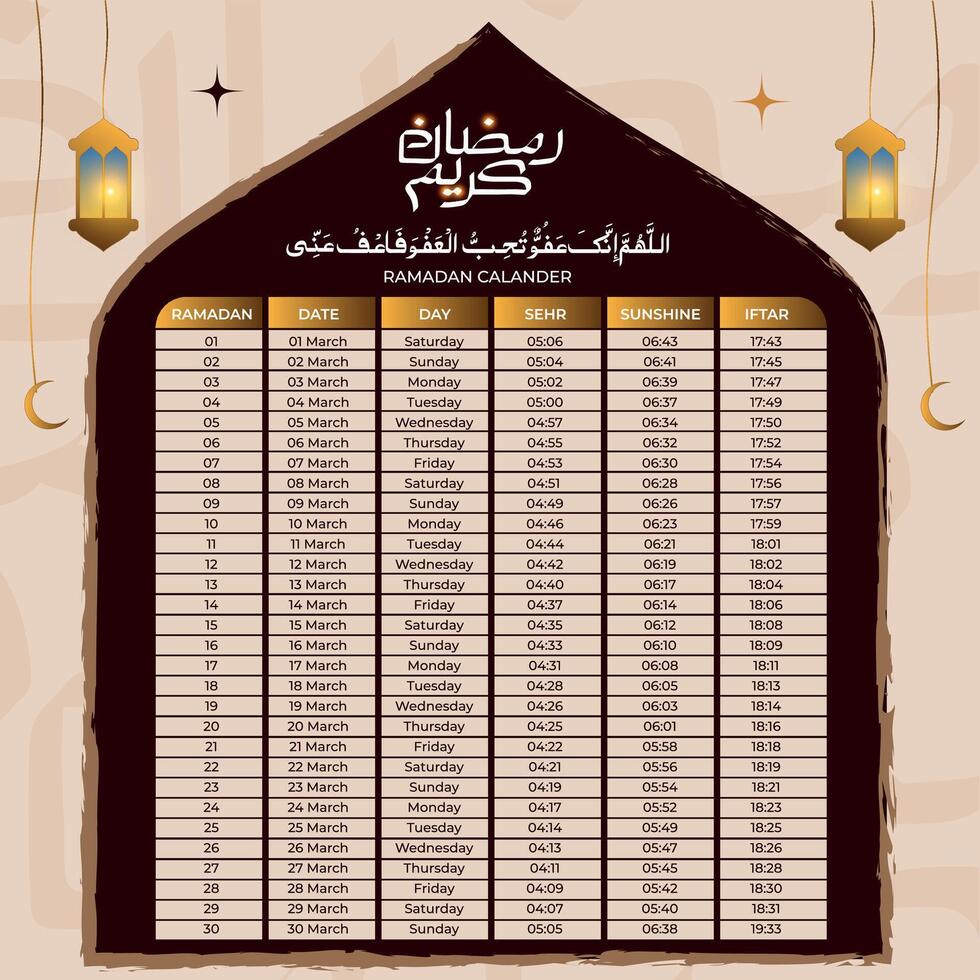 رمضان
كريم
اللَّهُمَّ إِنَّكَ عَفُوٌّ تُحِبُّ الْعَفْوَ فَاعْفُ عَنِّى
RAMADAN CALANDER
RAMADAN DATE DAY SEHR SUNSHINE IFTAR
01 01 March Saturday 05:06 06:43 17:43
02 02 March Sunday 05:04 06:41 17:45
03 03 March Monday 05:02 06:39 17:47
04 04 March Tuesday 05:00 06:37 17:49
05 05 March Wednesday 04:57 06:34 17:50
06 06 March Thursday 04:55 06:32 17:52
07 07 March Friday 04:53 06:30 17:54
08 08 March Saturday 04:51 06:28 17:56
09 09 March Sunday 04:49 06:26 17:57
10 10 March Monday 04:46 06:23 17:59
11 11 March Tuesday 04:44 06:21 18:01
12 12 March Wednesday 04:42 06:19 18:02
13 13 March Thursday 04:40 06:17 18:04
14 14 March Friday 04:37 06:14 18:06
15 15 March Saturday 04:35 06:12 18:08
16 16 March Sunday 04:33 06:10 18:09
17 17 March Monday 04:31 06:08 18:11
18 18 March Tuesday 04:28 06:05 18:13
19 19 March Wednesday 04:26 06:03 18:14
20 20 March Thursday 04:25 06:01 18:16
21 21 March Friday 04:22 05:58 18:18
22 22 March Saturday 04:21 05:56 18:19
23 23 March Sunday 04:19 05:54 18:21
24 24 March Monday 04:17 05:52 18:23
25 25 March Tuesday 04:14 05:49 18:25
26 26 March Wednesday 04:13 05:47 18:26
27 27 March Thursday 04:11 05:45 18:28
28 28 March Friday 04:09 05:42 18:30
29 29 March Saturday 04:07 05:40 18:31
30 30 March Sunday 05:05 06:38 19:33